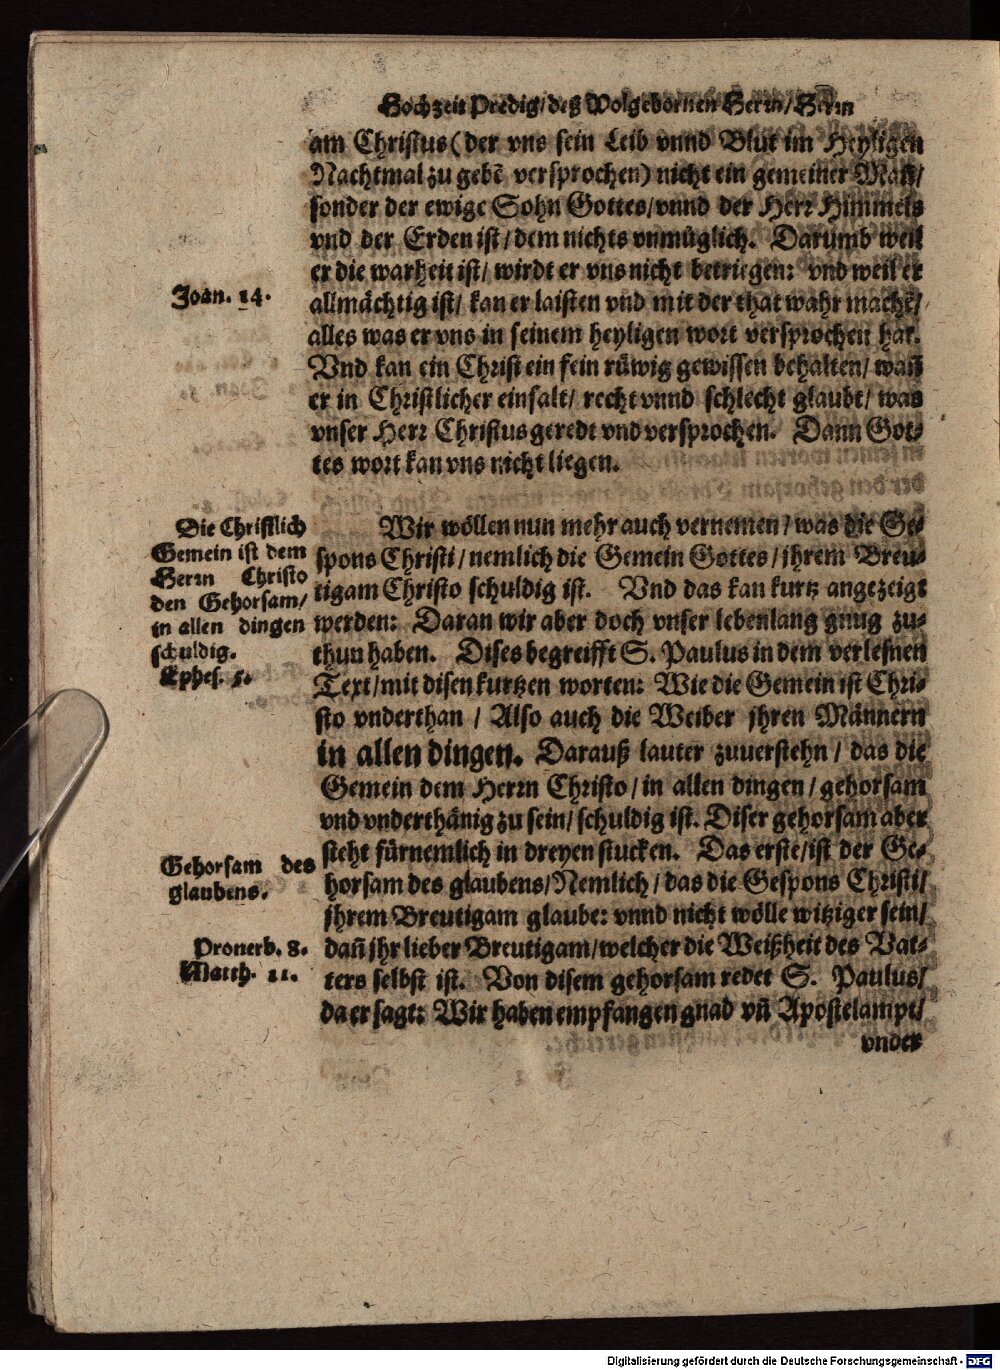 Hochzeit Predig/ deß Wolgebornen Herrn/ Herrn
am Christus (der vns sein Leib vnnd Blut im Heyligen
Nachtmal zu gebẽ versprochen) nicht ein gemeiner Mañ/
sonder der ewige Sohn Gottes/ vnnd der Herr Himmels
vnd der Erden ist/ dem nichts vnmüglich. Darumb weil
er die warheit ist/ wirdt er vns nicht betriegen: vnd weil er
Joan. 14.
allmächtig ist/ kan er laisten vnd mit der that wahr machẽ/
alles was er vns in seinem heyligen wort versprochen hat.
Vnd kan ein Christ ein fein rüwig gewissen behalten/ wañ
er in Christlicher einfalt/ recht vnnd schlecht glaubt/ was
vnser Herr Christus geredt vnd versprochen. Dann Got-
tes wort kan vns nicht liegen.
Die Christlich
Gemein ist dem
Herrn Christo
den Gehorsam/
in allen dingen
schuldig.
Ephes. 5.
Wir wöllen nun mehr auch vernemen/ was die Ge-
spons Christi/ nemlich die Gemein Gottes/ jhrem Breu-
tigam Christo schuldig ist. Vnd das kan kurtz angezeigt
werden: Daran wir aber doch vnser lebenlang gnug zu-
thun haben. Dises begreifft S. Paulus in dem verleßnen
Text/ mit disen kurtzen worten: Wie die Gemein ist Chri-
sto vnderthan/ Also auch die Weiber jhren Männern
in allen dingen. Darauß lauter zuuerstehn/ das die
Gemein dem Herrn Christo/ in allen dingen/ gehorsam
vnd vnderthänig zu sein/ schuldig ist. Diser gehorsam aber
steht fürnemlich in dreyen stucken. Das erste/ ist der Ge-
Gehorsam des
glaubens.
horsam des glaubens/ Nemlich/ das die Gespons Christi/
jhrem Breutigam glaube: vnnd nicht wölle witziger sein/
Prouerb. 8.
Matth. 11.
dañ jhr lieber Breutigam/ welcher die Weißheit des Vat-
ters selbst ist. Von disem gehorsam redet S. Paulus/
da er sagt: Wir haben empfangen gnad vñ Apostelampt/
vnder
Digitalisierung gefördert durch die Deutsche Forschungsgemeinschaft - DFG